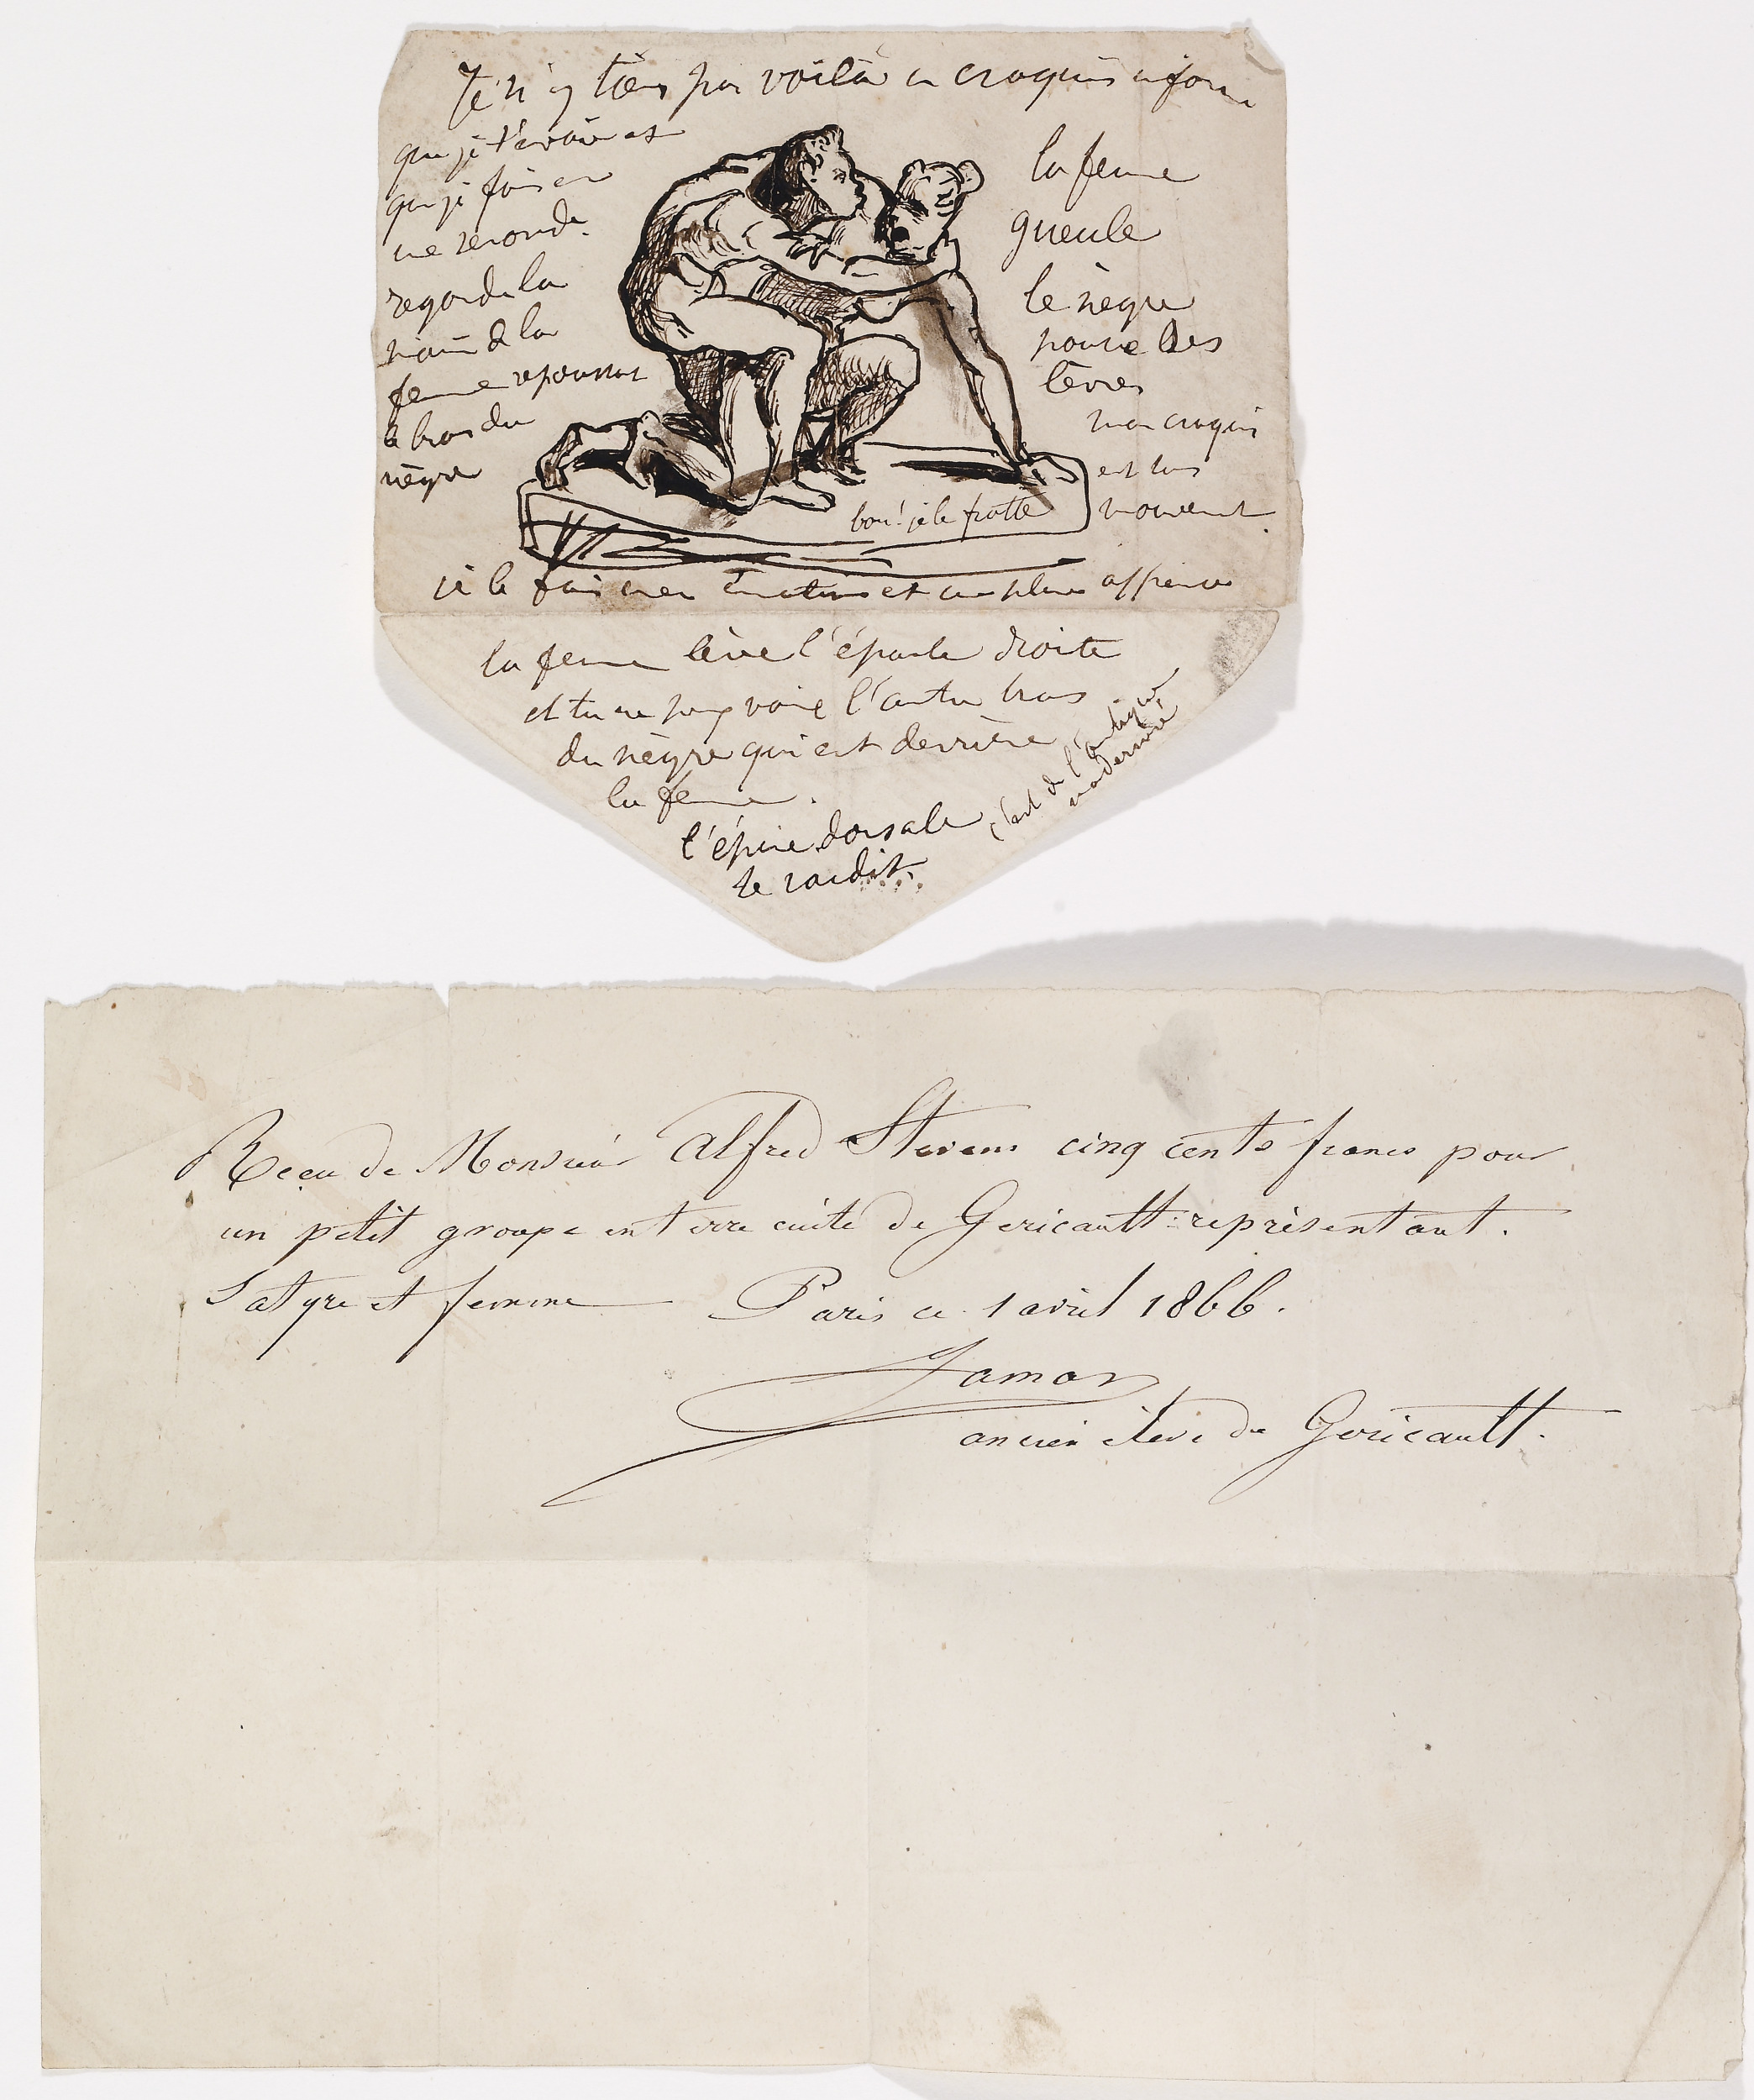 Je n'y tiens pas voilà un croquis informe
que je t'envoie et
que je fais en
une seconde.
regarde la
main de la
femme repoussant
le bras du
nègre
la femme
gueule
le nègre
pousse les
lèvres
mon croquis
est sans
mouvement.
bon! je le frotte
je le fais avec émotion et une plume affreuse
la femme lève l'épaule droite
et tu ne peux voir l'autre bras
du nègre qui est derrière
la femme.
c'est de l'antique
modernisé
l'épine dorsale
se raidit.
Recu de Monsieur Alfred Stevens cinq cents francs pour
un petit groupe en terre cuite de Gericault représentant.
Satyre et femme Paris ce 1 avril 1866.
Jamar
ancien éleve de Gericault.